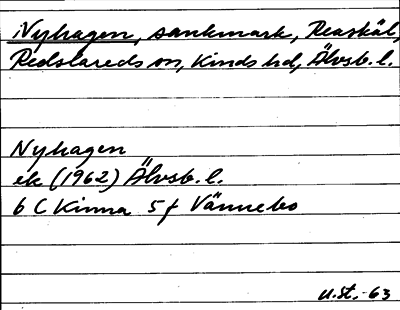 Nyhagen, sankmark, Reaskäl,
Redslareds sn, Kinds hd, Älvsb. l.
Nyhagen
ek (1962) Älvsb. l.
6 C Kinna 5 f Vännebo
u.st. -63